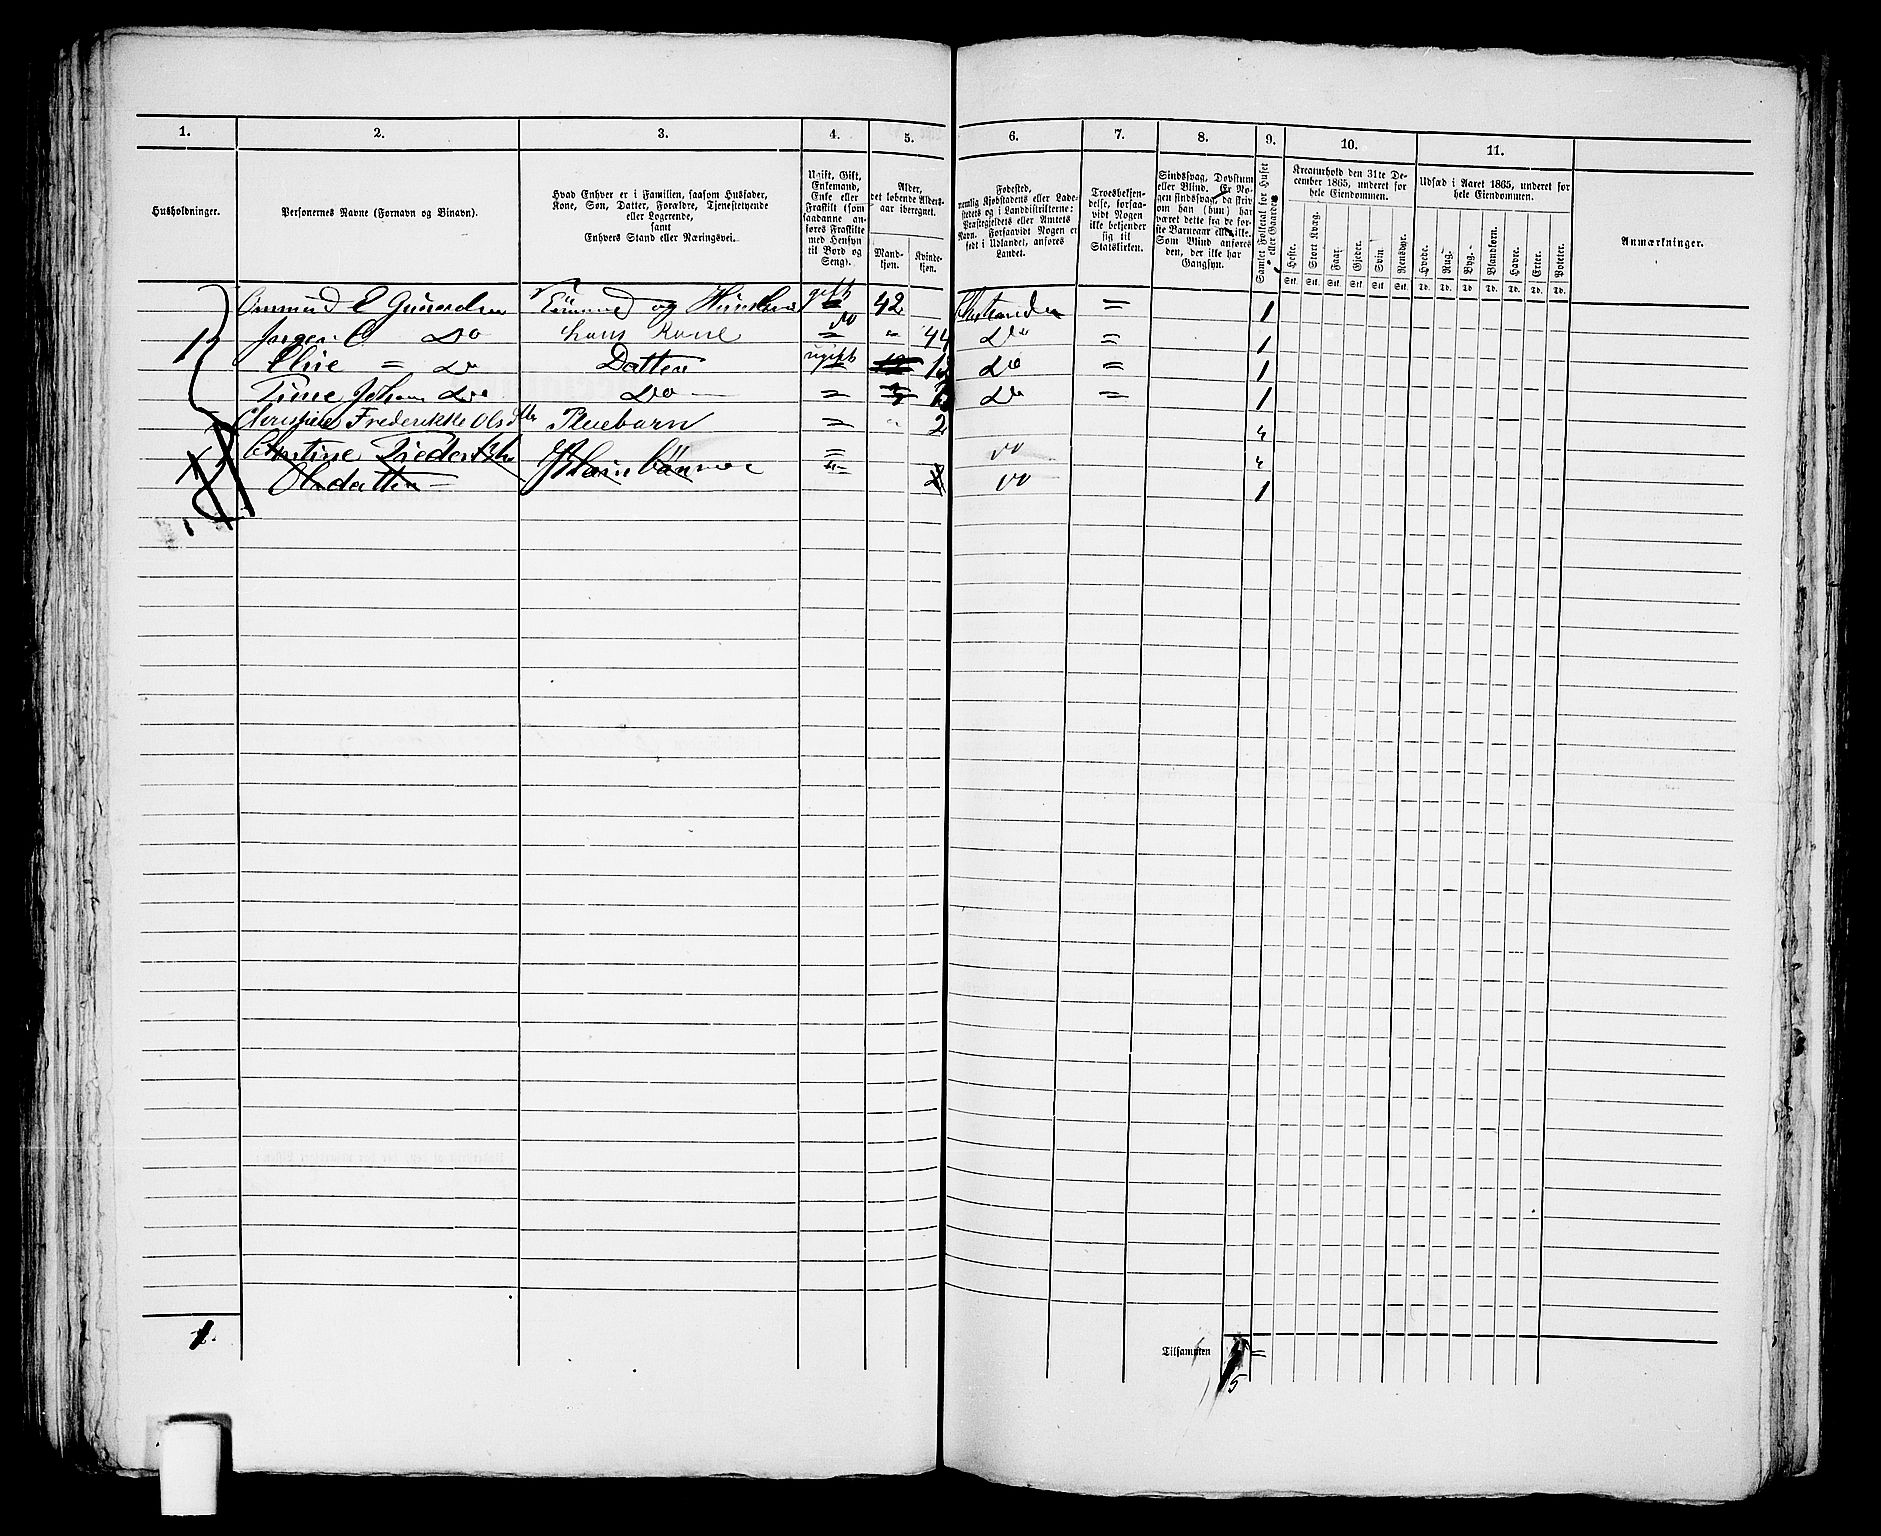 1.
2.
3.
4.
5.
6.
7.
8.
9.
10.
11.
Husholdninger.
Personernes Navne (Fornavn og Binavn).
Hvad Enhver er i Familien, saasom Husfader,
Kone, Søn, Datter, Forældre, Tjenestetyende
eller Logerende,
samt
Enhvers Stand eller Næringsvei.
Ugift, Gift,
Enkemand,
Enke eller
Fraskilt (som
saadanne an-
føres Fraskilte
med Hensyn
til Bord og
Seng).
Alder,
det løbende Alders-
aar iberegnet.
Mand-
kjøn.
Kvinde-
kjøn.
Fødested,
nemlig Kjøbstadens eller Lade-
stedets og i Landdistrikterne:
Præstegjeldets eller Amtets
Navn. Forsaavidt Nogen er
født i Udlandet, anføres
Landet.
Troesbekjen-
delse, forsaa-
vidt Nogen
ikke bekjender
sig til
Statskirken.
Sindssvag, Døvstum
eller Blind. Er No-
gen sindssvag, da skriv
om han (hun) har
været dette fra de før-
ste Barneaar eller ikke.
Som Blind anføres
den, der ikke har
Gangsyn.
Samlet Folketal for Huset
eller Gaarden
Kreaturhold den 31te De-
cember 1865, underet for
hele Eiendommen.
Heste.
Stort Kvæg.
Faar.
Gjeder.
Svin
Rensdyr.
Stk. Stk. Stk. Stk. Stk Stk.
Udsæd i Aaret 1865, underet for
hele Eiendommen.
Hvede.
Rug.
Byg.
Blandkorn.
Havre.
Erter.
Poteter.
Td. Td. Td. Td. Td. Td. Td.
Anmærkninger.
1 E Gundersen og gift 42 = 1
Do hans Kone Do " 44 Do = 1
Eline = Do Datter ugift Do = 1
Johan Do Do = Do = 1
Christine Frederikke Olsdtr Pleiebarn = " 2
= Do
Olsdatter Do 1
1.
Tilsammen =
5